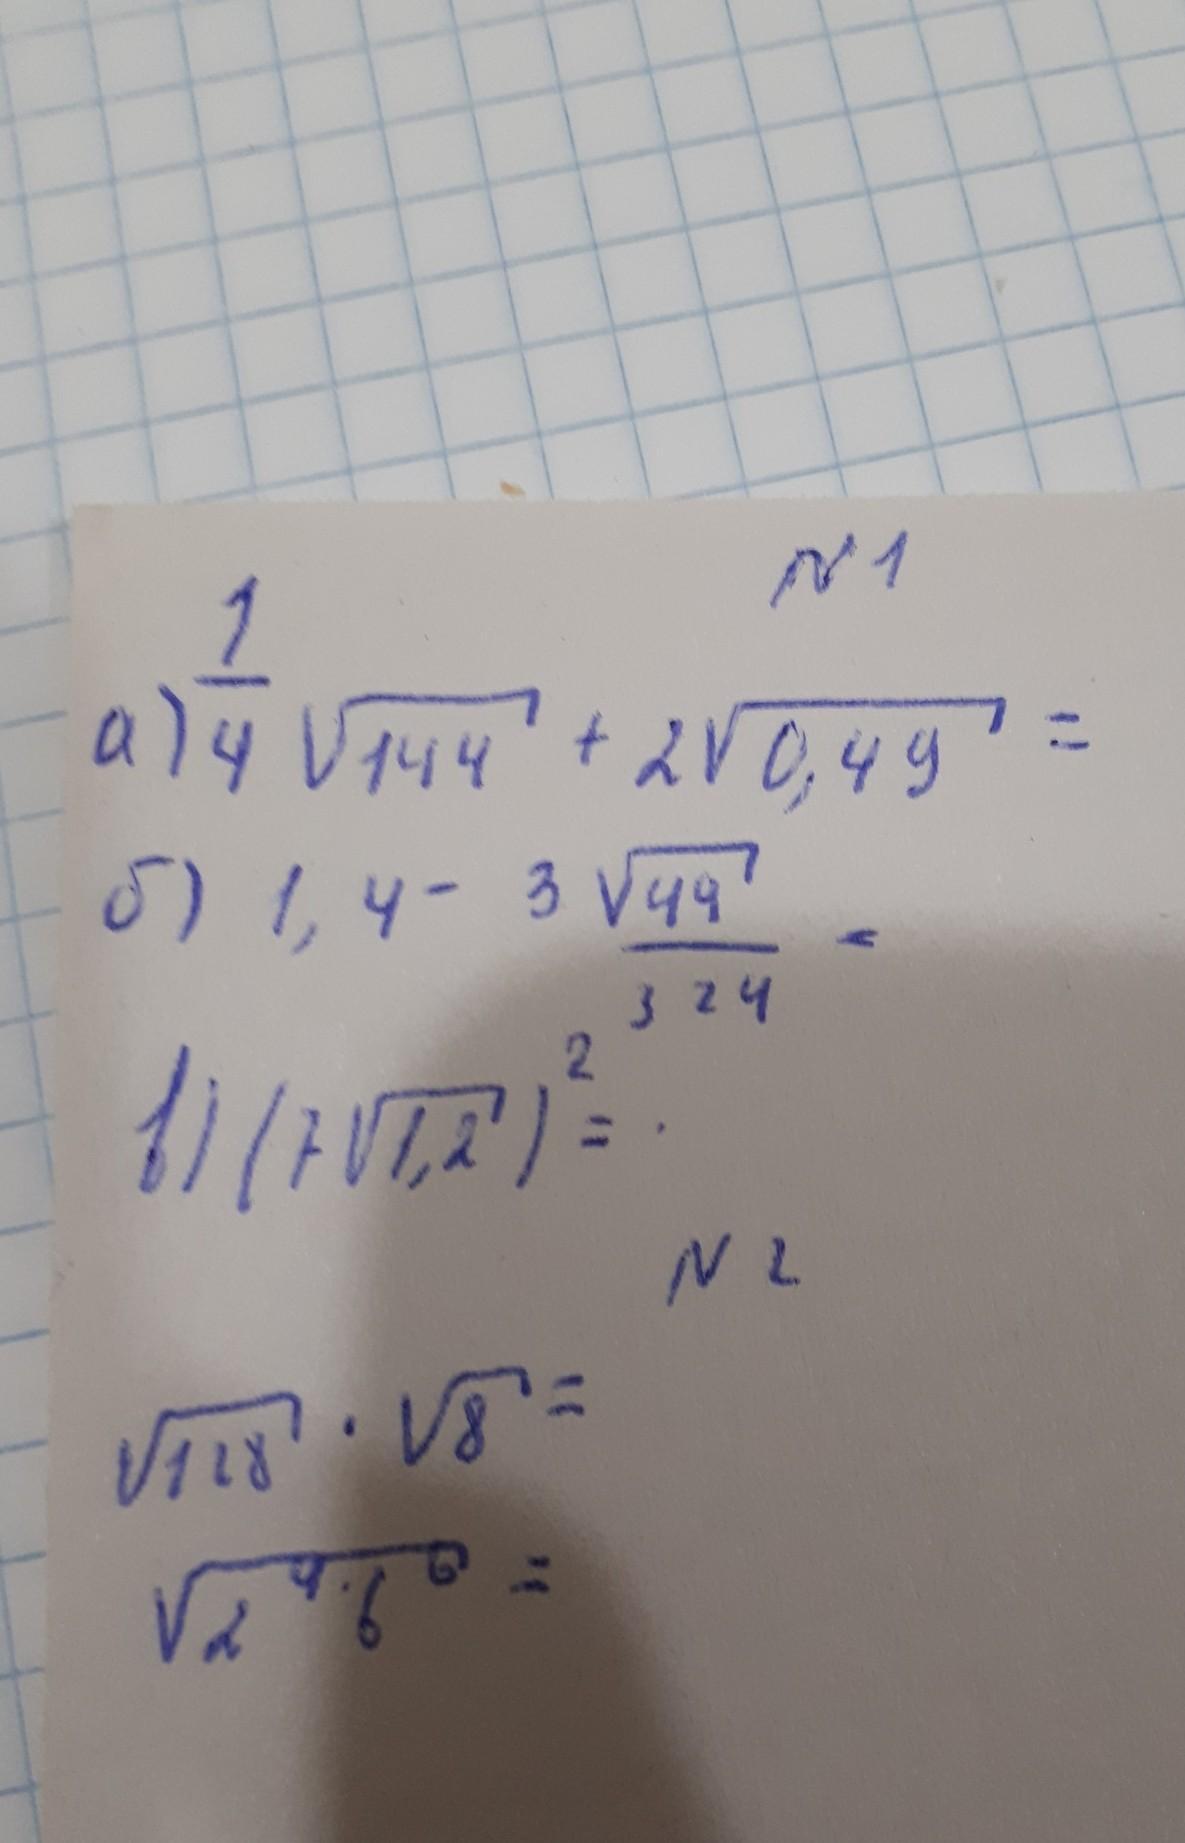 N 1
а) 1/4 √144 + 2√0,49 =
б) 1,4 - 3 √49/324 =
в) (7√1,2)² = .
N 2
√128 · √8 =
√2⁴·6⁶ =